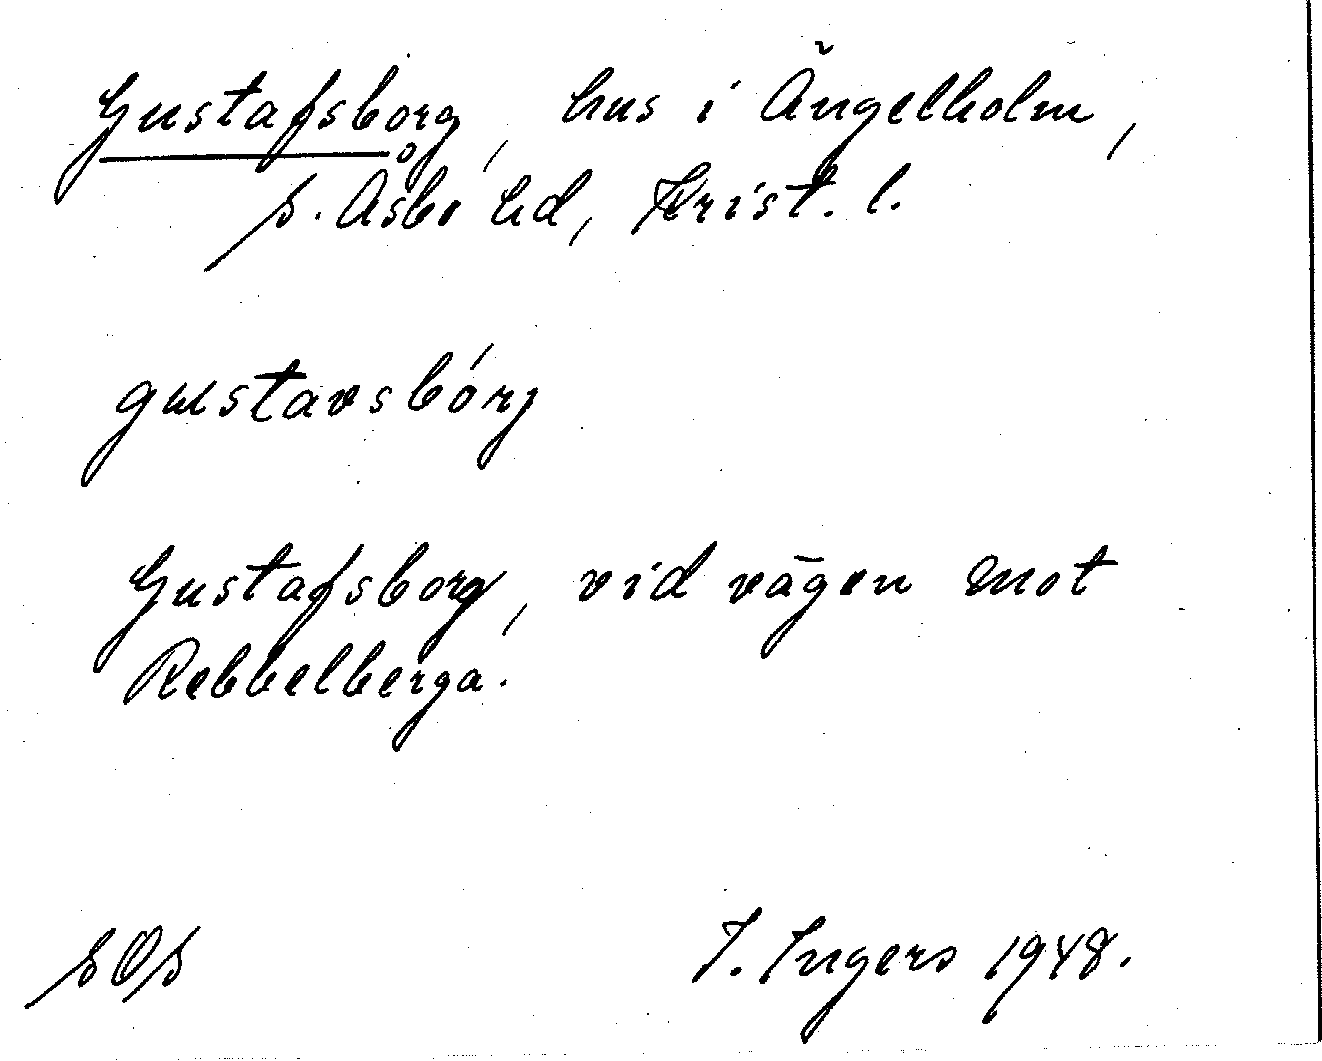 Gustafsborg, hus i Ängelholm,
S. Åsbo hd, Krist. l.
gustavsbórj
Gustafsborg, vid vägen mot
Rebbelberga.
SOS
I. Ingers 1948.